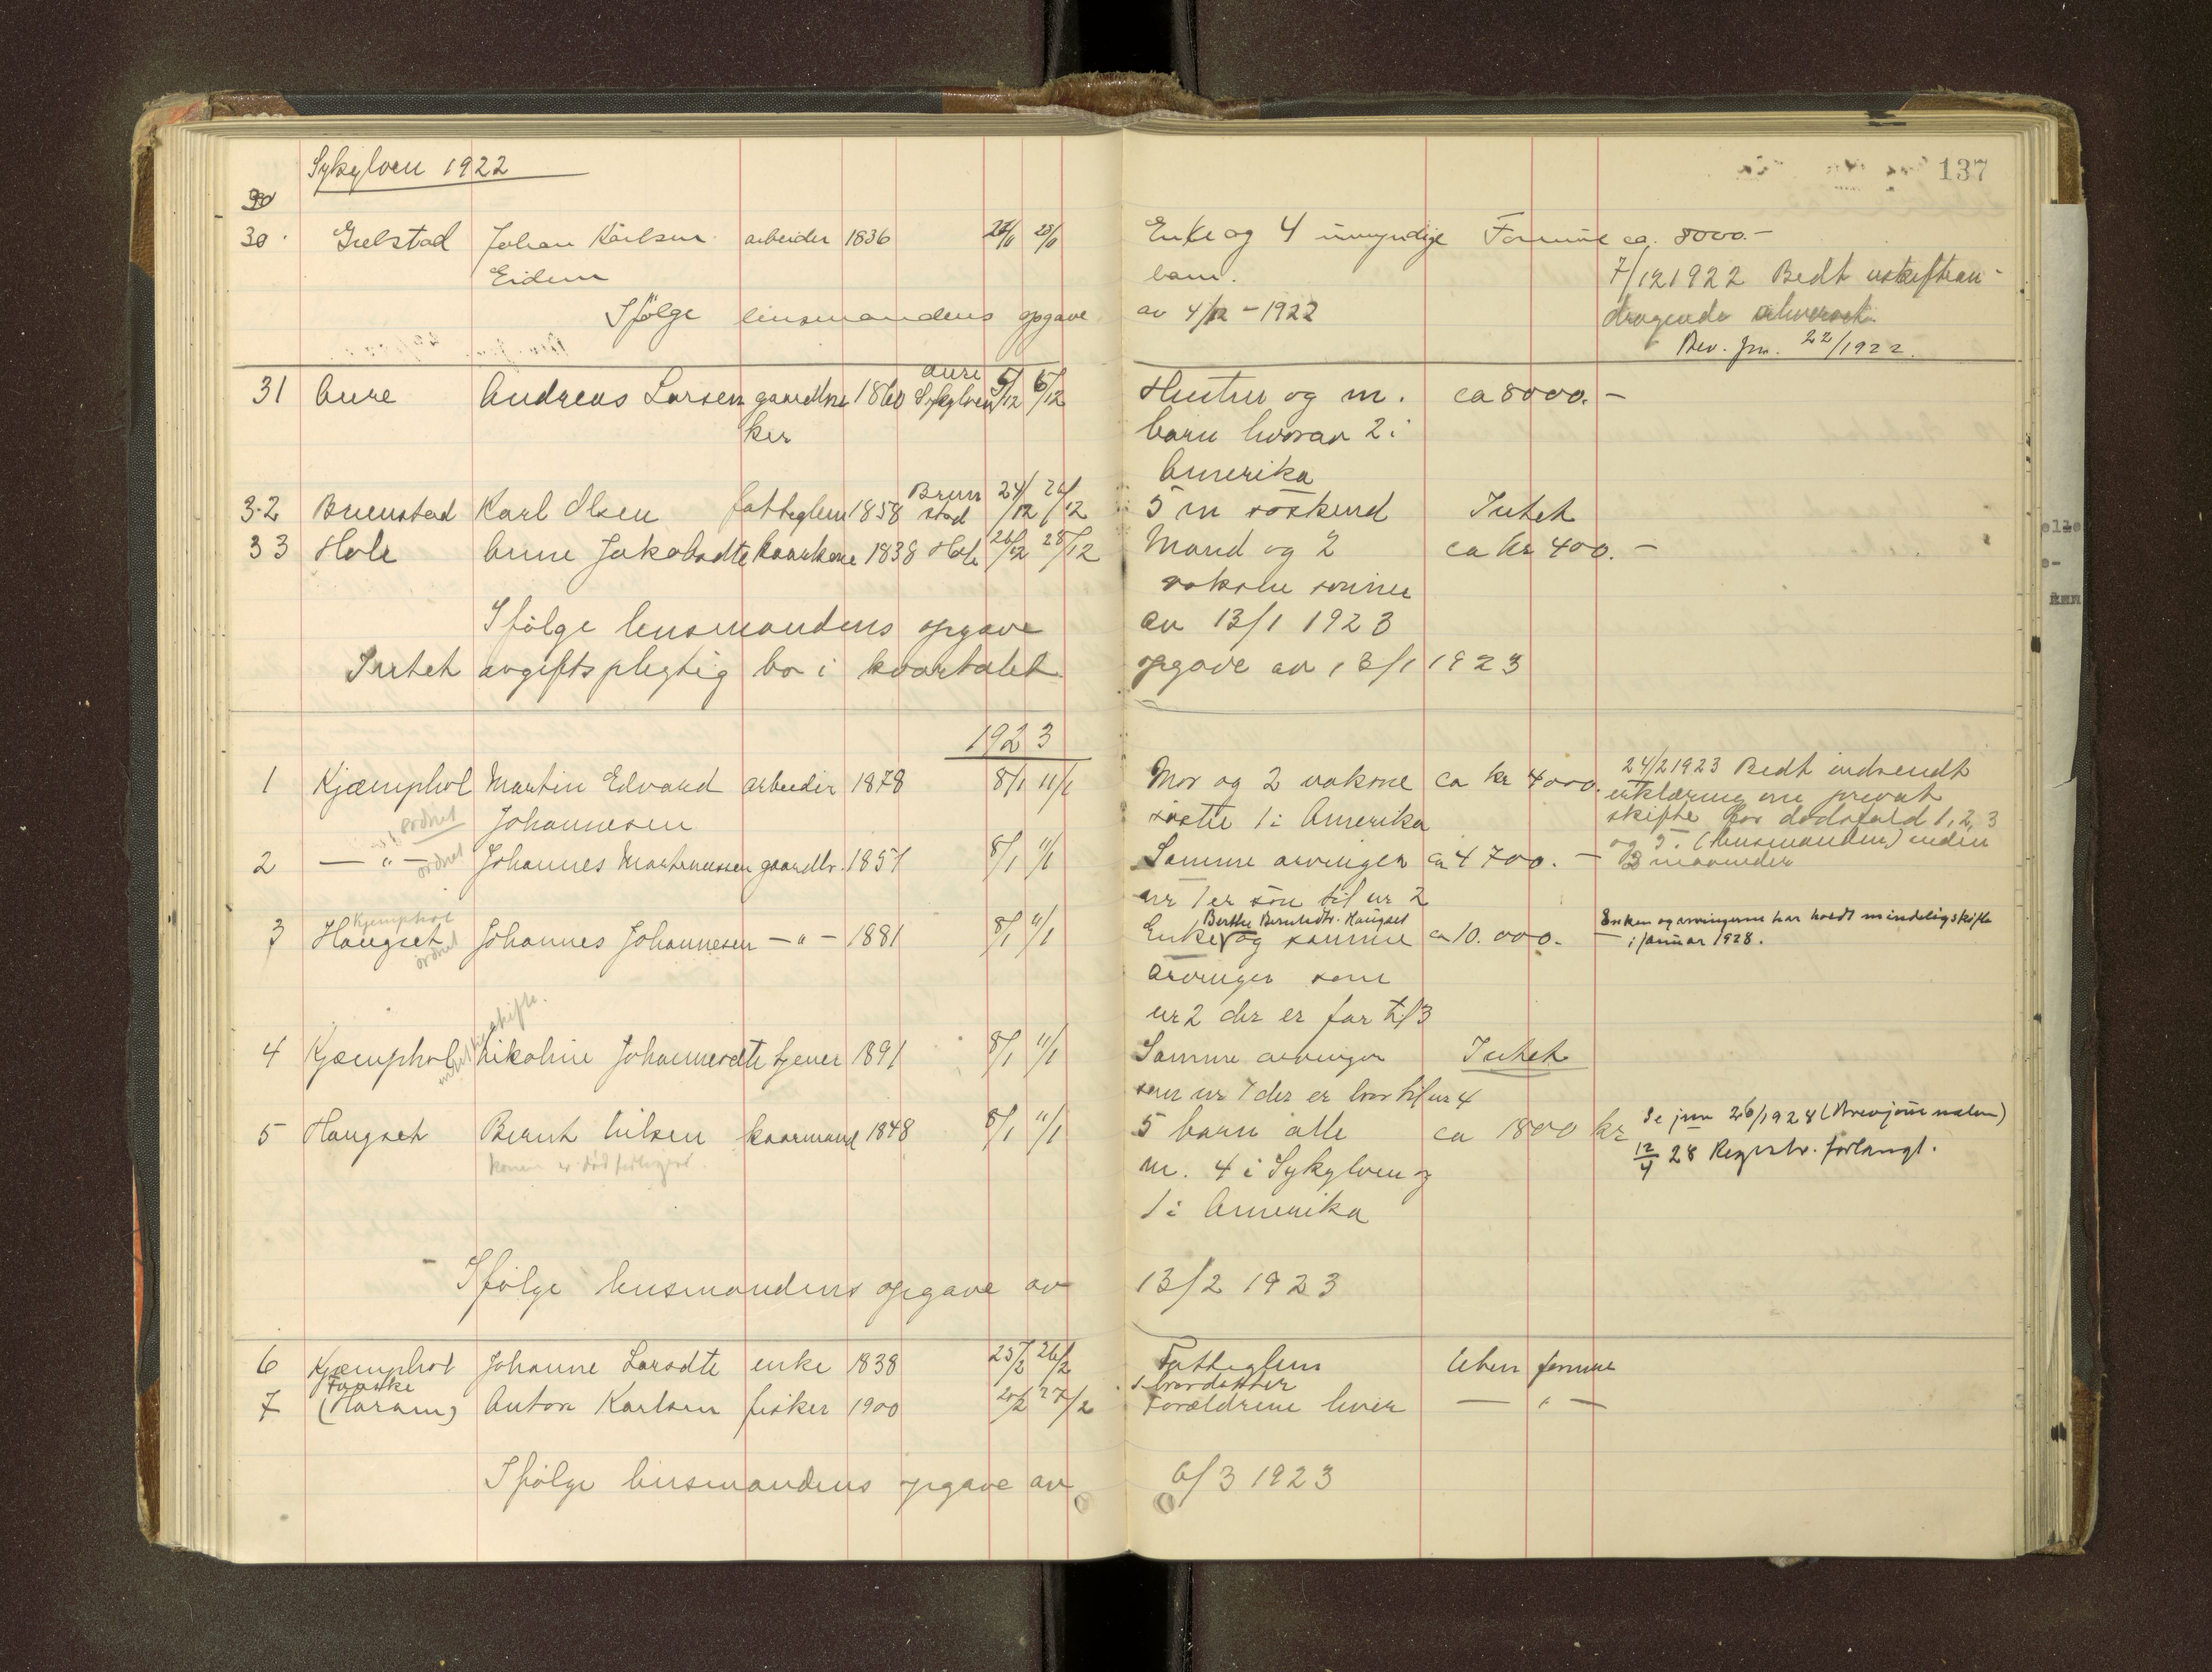 Sykylven 1922
137
30
30 Gjelstad Johan Karlsen arbeider 1836 22/11 23/11 Enke og 4 umyndige Formue ca. 8000.-
Eidem barn. 7/12 1922 Bedt uskiftean-
Ifölge lensmandens opgave av 4/12 - 1922 dragende
Brev. jrn. 22/1922.
31 Aure Andreas Larsen gaardbru 1860 Aure Sykylven 5/12 6/12 Hustru og m. ca 8000.-
ker barn hvorav 2 i
Amerika
32 Brunstad Karl Olsen fattiglem 1858 Brunstad 24/12 26/12 5 m söskend Intet
33 Hole Anne Jakobsdtr kaarkone 1838 Hole 26/12 28/12 Mand og 2 ca kr 400.-
voksne sönner
Ifölge lensmandens opgave av 13/1 1923
Intet avgiftspligtig bo i kvartalet. opgave av 13/1 1923
1923
1 Kjæmphol Martin Edvard arbeider 1878 8/1 11/1 Mor og 2 voksne ca kr 4000. 24/2 1923 Bedt indsendt
ordnet Johannesen söstre 1 i Amerika erklæring om privat
skifte for dödsfald 1, 2, 3
og 5. (lensmanden) inden
2 — " — ordnet Johannes Martinussen gaardbr. 1851 8/1 11/1 Samme arvinger ca 4700. - 3 maaneder
nr 1 er sön til nr 2
3 Haugset Kjemphol ordnet Johannes Johannesen — " — 1881 8/1 11/1 Enke Berthe Berntsdtr. Haugset og samme ca 10.000. Enken og arvingerne har holdt mindelig skifte
i januar 1928.
arvinger som
nr 2 der er far til 3
4 Kjæmphol Nikoline Johannesdtr tjener 1891 8/1 11/1 Samme arvinger Intet
som nr 1 der er bror til nr 4
5 Haugset Bernt Nilsen kaarmand 1848 8/1 11/1 5 barn alle ca 1800 kr Se jrn 26/1928 (Brevjournalen)
konen er död tidligere. m. 4 i Sykylven og 12/4 28 Registr. forlangt.
1 i Amerika
Ifölge lensmandens opgave av 13/2 1923
6 Kjæmphol Johanne Larsdtr enke 1838 25/2 26/2 Fattiglem Uten formue
1 brordatter
7 (Haram) Anton Karlsen fisker 1900 20/2 27/2 Forældrene lever — " —
Ifölge lensmandens opgave av 6/3 1923